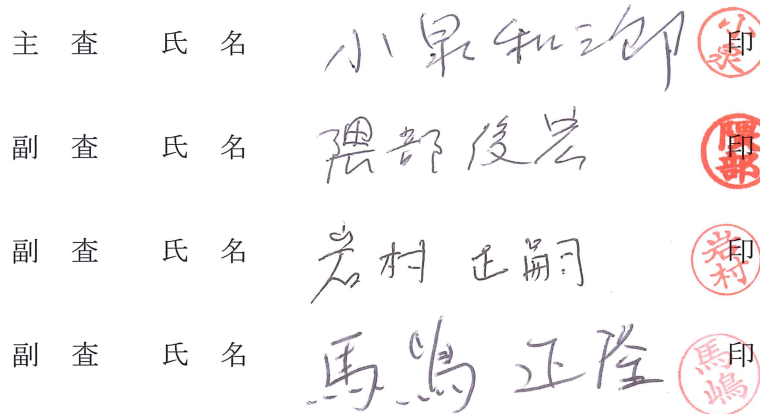 主査 氏名 小泉和三郎 印 小泉
副査 氏名 隈部俊宏 印 隈部
副査 氏名 岩村正嗣 印 岩村
副査 氏名 馬嶋正隆 印 馬嶋